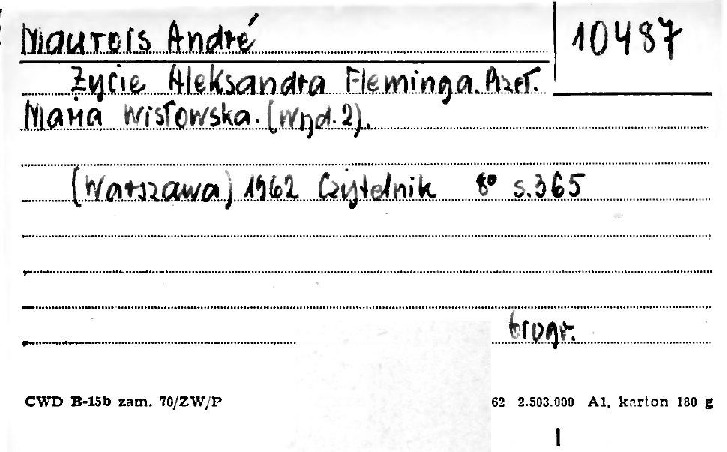 Maurois André
10487
Życie Aleksandra Fleminga. Przeł.
Maria Wisłowska. (Wyd. 2).
(Warszawa) 1962 Czytelnik 8° s. 365
biogr.
CWD B-15b zam. 70/ZW/P
62 2.503.000 A1, karton 180 g